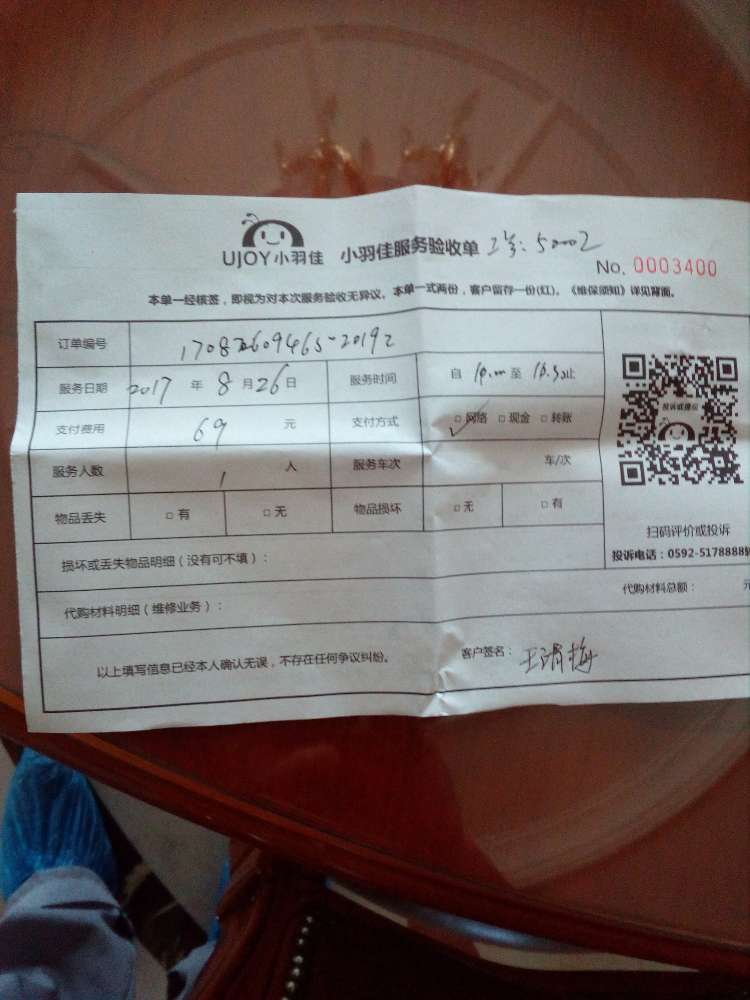 UJOY小羽佳 小羽佳服务验收单 工号:50002
No. 0003400
本单一经核签，即视为对本次服务验收无异议。本单一式两份，客户留存一份(红)。《维保须知》详见背面。
订单编号 17082609465-20192
服务日期 2017 年 8 月 26 日 服务时间 自 至 止
支付费用 69 元 支付方式 □网络 □现金 □转账
投诉或建议
服务人数 1 人 服务车次 车/次
物品丢失 □有 □无 物品损坏 □无 □有
扫码评价或投诉
投诉电话：0592-5178888转
损坏或丢失物品明细（没有可不填）：
代购材料明细（维修业务）： 代购材料总额： 元
以上填写信息已经本人确认无误，不存在任何争议纠纷。 客户签名：